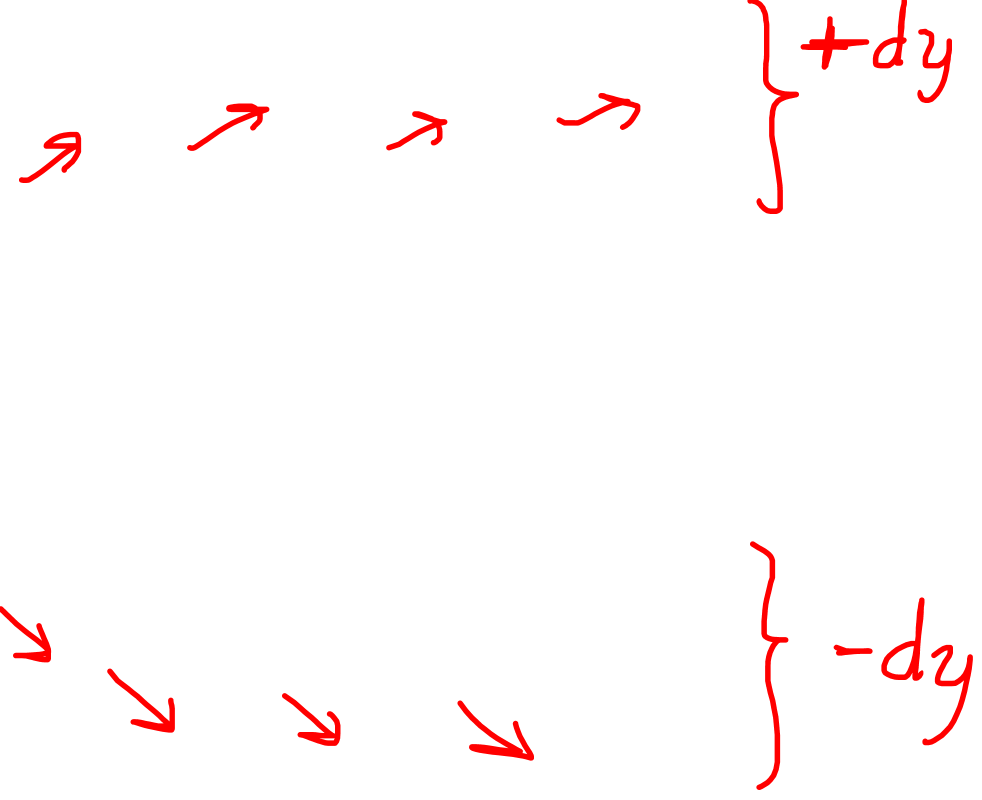 +dy
-dy